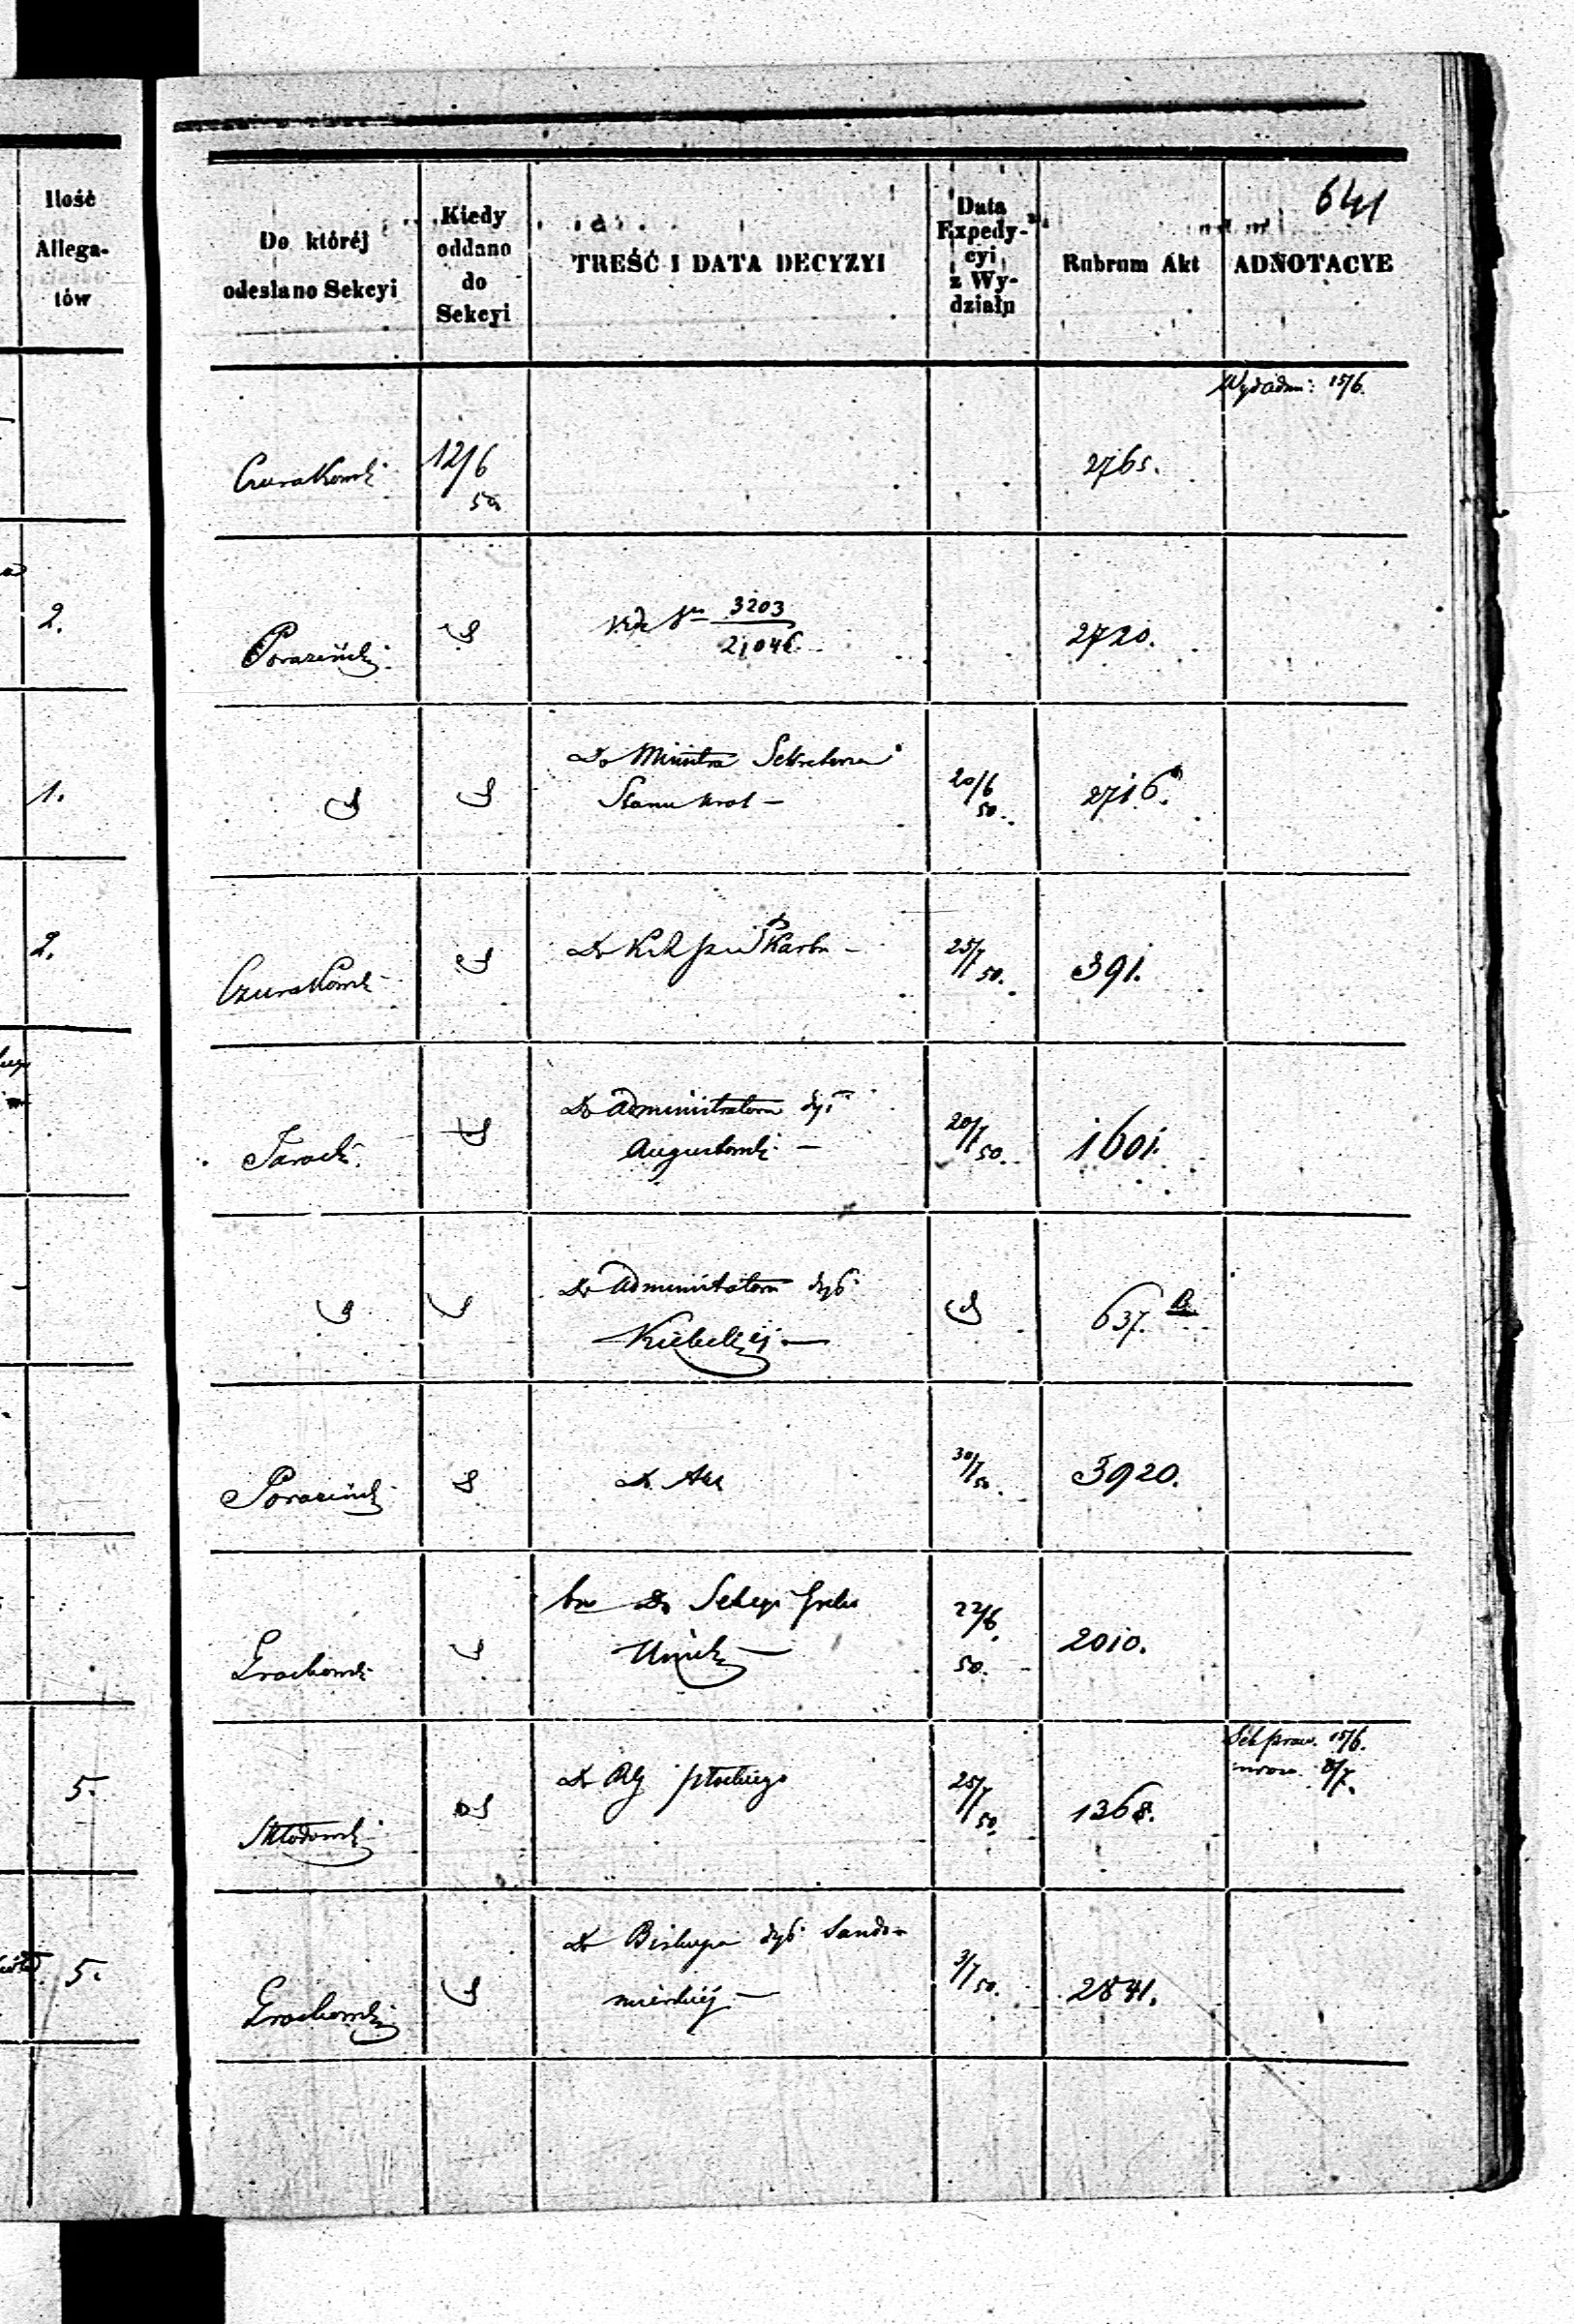 641
Ilość
Allega-
tów
Do któréj
odesłano Sekcyi
Kiedy
oddano
do
Sekcyi
TREŚĆ I DATA DECYZYI
Data
Expedy-
cyi
z Wy-
działu
Rubrum Akt
ADNOTACYE
15/6.
Czurakowski
12/6
50
2765.
2.
Poraziński
3203
21046.
2720.
1.
Do Ministra Sekretarza
Stanu Król —
20/6
50.
2716.
2.
Czurakowski
Do Skarbu —
25/7
50.
391.
Do Administratora dyi
Augustowski —
20/7
50.
1601.
Do Administratora dyi
Kieleckiéj —
637. a
Poraziński
Do Akt
30/7
50.
3920.
Grochowski
Do Sekcyi
22/6.
50.
2010.
5.
Skłodowski
Do Płockiego
25/7
50.
1368.
15/6.
8/7.
5.
Grochowski
Do Biskupa dyi Sando-
mierskiéj —
3/7
50.
2841.